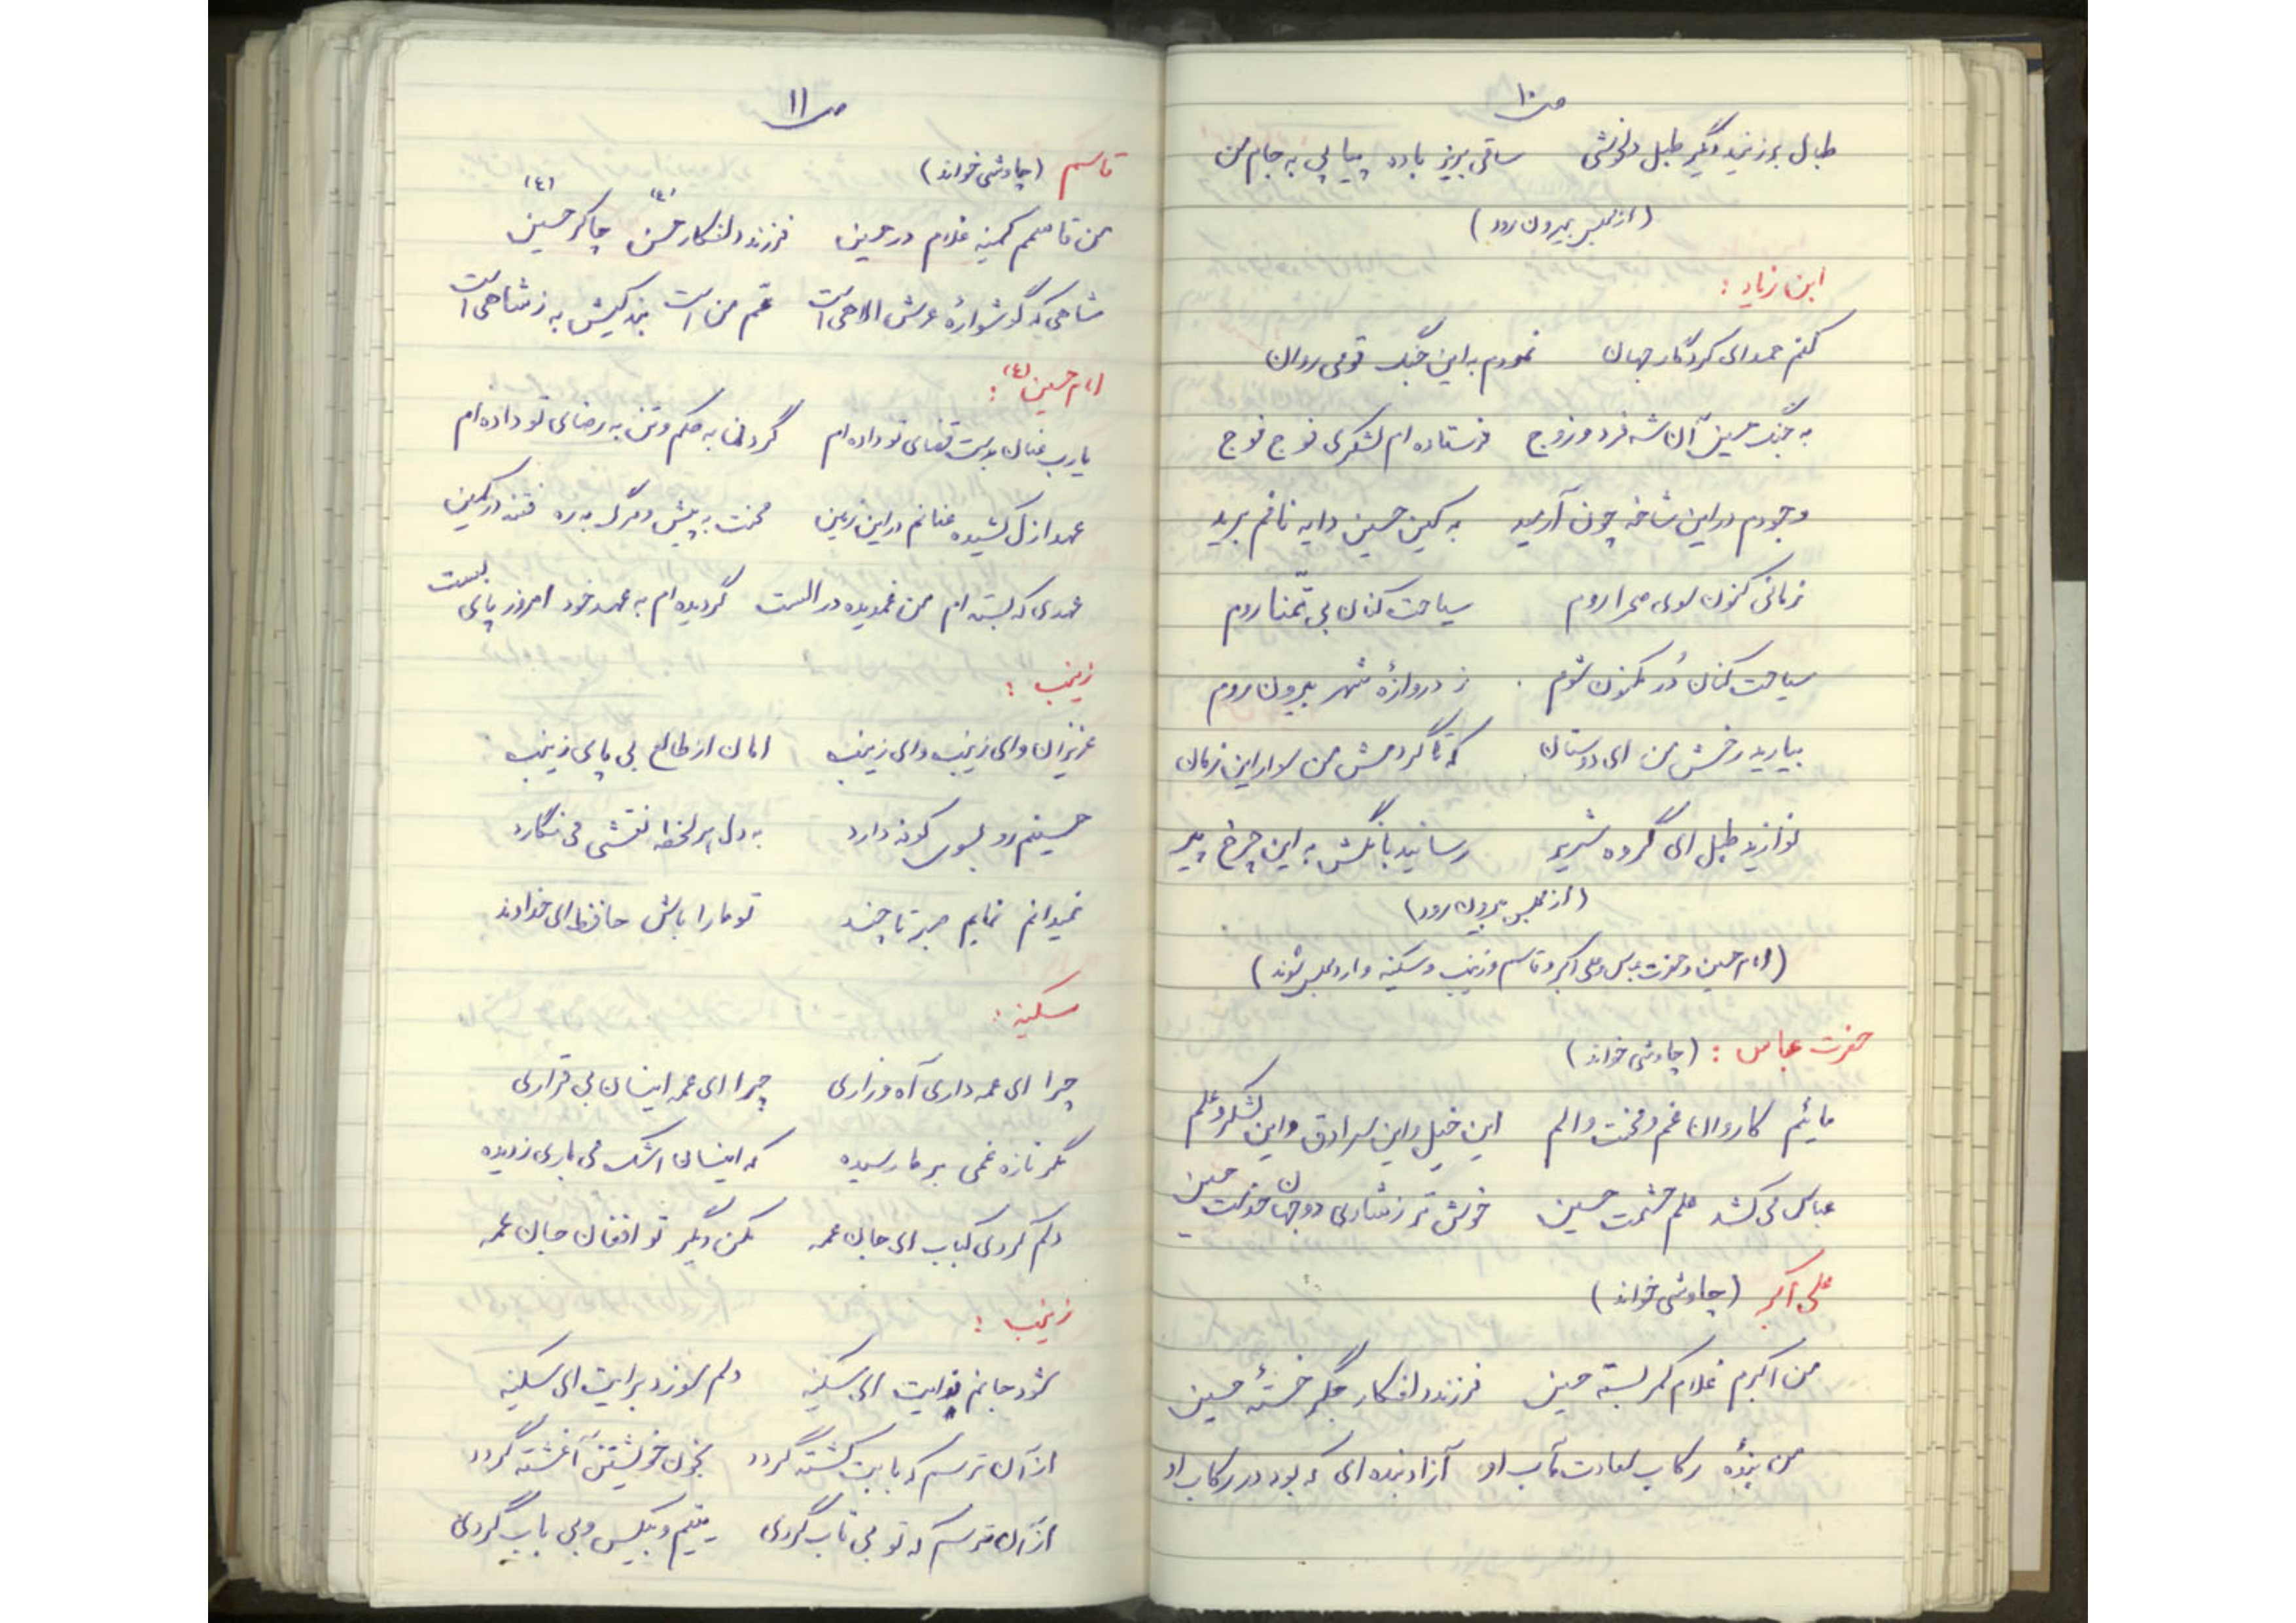 ص ۱۰
طبال بر زنید دگر طبل دلخوشی ساقی بریز باده پیاپی به جام من
(از مجلس بیرون رود)
ابن زیاد :
کنم حمد ای کردگار جهان نمودم به این جنگ قومی روان
به جنگ حسین آن شه فرد و زوج فرستاده ام لشکری فوج فوج
وجودم در این شاخه چون آرمید به کین حسین دایه نافم برید
زمانی کنون سوی صحرا روم سیاحت کنان بی تمنا روم
سیاحت کنان دُر مکنون شوم ز دروازهٔ شهر بیرون روم
بیارید رخش من ای دوستان که تا گردمش من سوار این زمان
نوازید طبل ای گروه شریر رسانید بانگش به این چرخ پیر
(از مجلس بیرون رود)
(امام حسین و حضرت عباس و علی اکبر و قاسم و زینب و سکینه وارد مجلس شوند)
حضرت عباس : (چاوشی خواند)
مائیم کاروان غم و محنت و الم این خیل و این سرادق و این لشکر و علم
عباس می کشد علم حشمت حسین خوش تر ز شادی دو جهان خدمت حسین
علی اکبر (چاوشی خواند)
من اکبرم غلام کمر بسته حسین فرزند دلفکار جگر خستهٔ حسین
من بندهٔ رکاب سعادت مآب او آزاد بنده ای که بود در رکاب او
ص ۱۱
قاسم (چاوشی خواند)
من قاسمم کمینه غلام در حسین فرزند دلفکار حسن (ع) چاکر حسین (ع)
شاهی که گوشوارهٔ عرش الاهی است عم من است بندگیش به ز شاهی است
امام حسین (ع) :
یارب عنان بدست قضای تو داده ام گردن به حکم و تن به رضای تو داده ام
عهد ازل کشیده عنانم در این زمین محنت به پیش و مرگ به ره فتنه در کمین
عهدی که بسته ام من غمدیده در الست گردیده ام به عهد خود امروز پای بست
زینب :
عزیزان وای زینب وای زینب امان از طالع بی پای زینب
حسینم رو بسوی کوفه دارد به دل هر لحظه نقشی می نگارد
نمیدانم نمایم صبر تا چند تو ما را باش حافظ ای خداوند
سکینه :
چرا ای عمه داری آه و زاری چرا ای عمه اینسان بی قراری
مگر تازه غمی بر ما رسیده که اینسان اشک می باری ز دیده
دلم کردی کباب ای جان عمه مکن دیگر تو افغان جان عمه
زینب :
شود جانم فدایت ای سکینه دلم سوزد برایت ای سکینه
از آن ترسم که بابت کشته گردد بخون خویشتن آغشته گردد
از آن ترسم که تو بی تاب گردی یتیم و بیکس و بی باب گردی